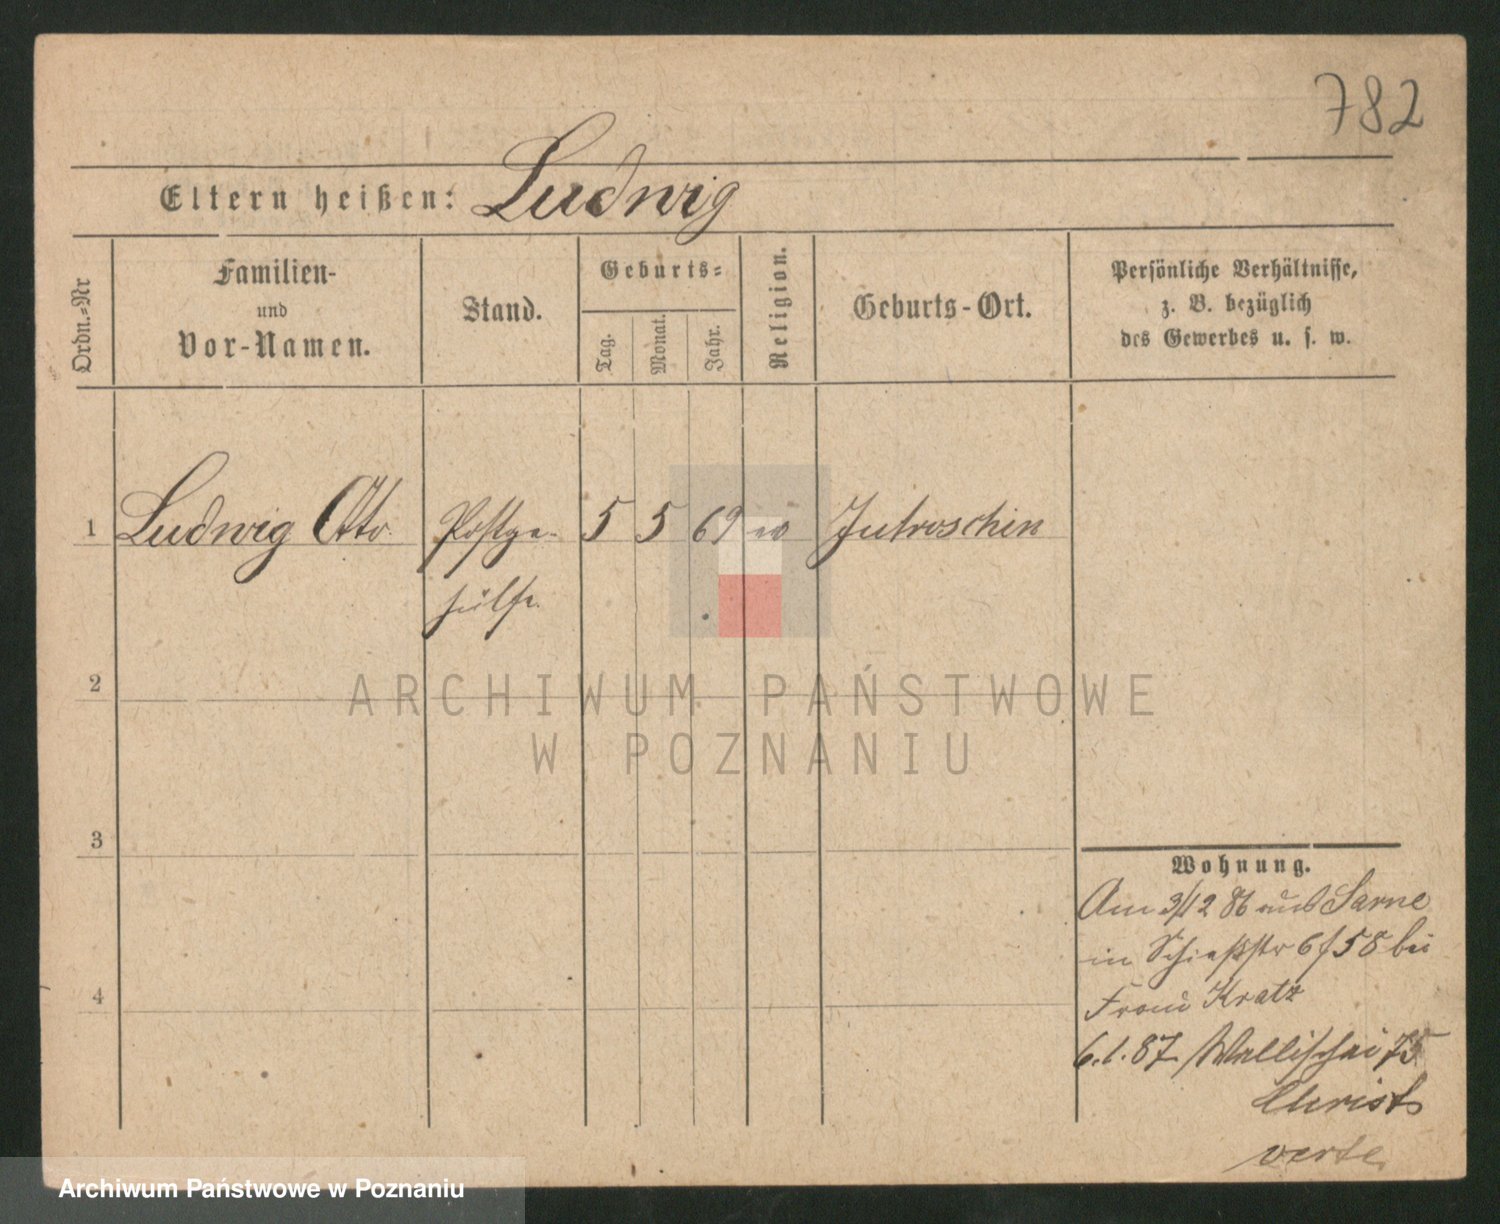 782
Eltern heißen: Ludwig
Ordn.=Nr
Familien-
und
Vor-Namen.
Stand.
Geburts=
Tag.
Monat.
Jahr.
Religion.
Geburts-Ort.
Persönliche Verhältnisse,
z. B. bezüglich
des Gewerbes u. s. w.
1 Ludwig Otto Postge- 5 5 69 Jutroschin
hülfe
2
3
4
Wohnung.
Am 3/12 86 aus Sarne
in Schießstr 6 / 58 bei
Frau Kratz
6.1.87 Wallischei 75
Christ
verte
ARCHIWUM PAŃSTWOWE
W POZNANIU
Archiwum Państwowe w Poznaniu